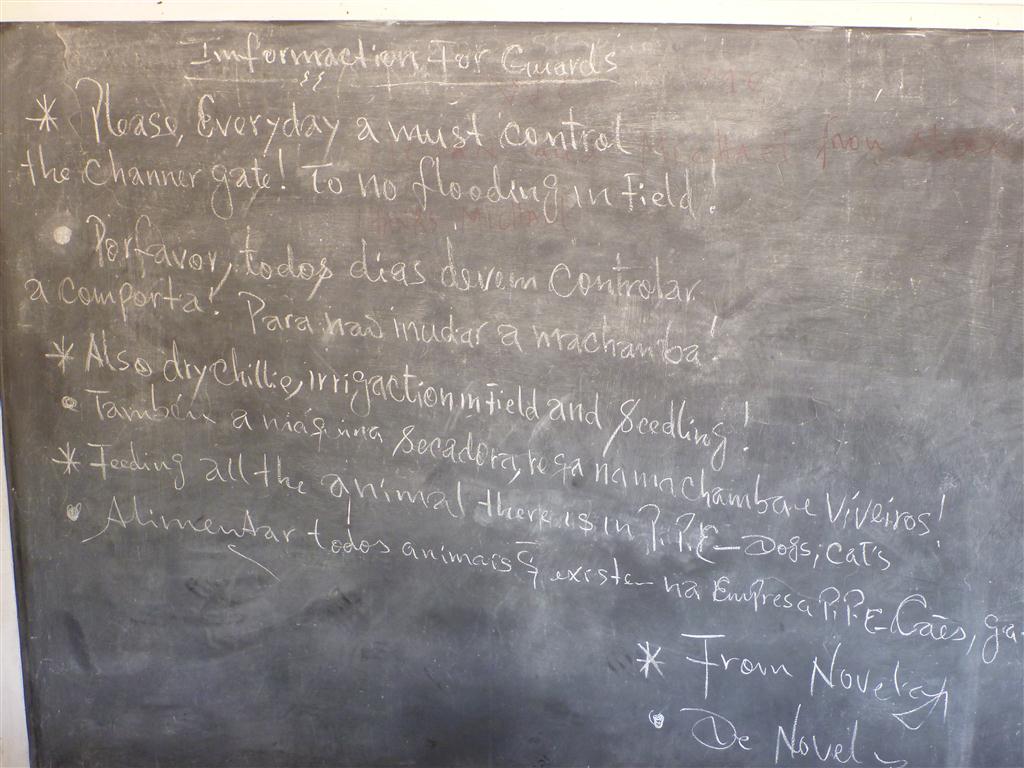 Informaction For Guards
* Please, Everyday a must control
the Channer gate! To no flooding in Field!
• Porfavor, todos dias devem Controlar
a comporta! Para não inudar a machamba!
* Also dry Chillie, irrigaction in Field and Seedling!
• Também a máquina Secadora, rega na machamba e Viveiros!
* Feeding all the animal there is in P.i.P.E – Dogs, cat's
• Alimentar todos animais q̃ existe na Empresa P.i.P.E – Cães, ga-
* From Novel
• De Novel
from
Thanks Michael